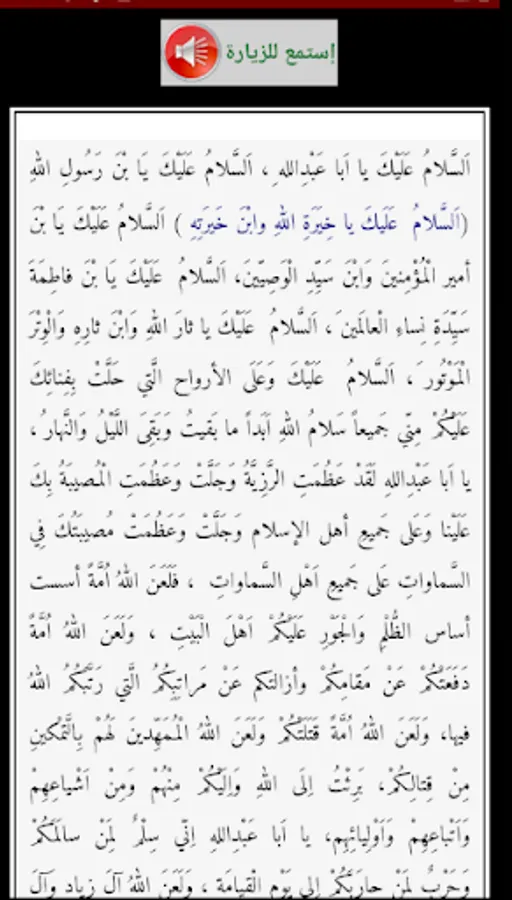 إستمع للزيارة
اَلسَّلامُ عَلَيْكَ يا اَبا عَبْدِالله ِ، اَلسَّلامُ عَلَيْكَ يَا بْنَ رَسُولِ اللهِ
(اَلسَّلامُ عَلَيكَ يا خِيَرَةِ اللهِ وابْنَ خَيرَتِهِ ) اَلسَّلامُ عَلَيْكَ يَا بْنَ
أمير الْمُؤْمِنينَ وَابْنَ سَيِّدِ الْوَصِيّينَ، اَلسَّلامُ عَلَيْكَ يَا بْنَ فاطِمَةَ
سَيِّدَةِ نِساءِ الْعالَمين َ، اَلسَّلامُ عَلَيْكَ يا ثارَ اللهِ وَابْنَ ثارِهِ وَالْوِتْرَ
الْمَوْتُور َ، اَلسَّلامُ عَلَيْكَ وَعَلَى الأرواح الَّتي حَلَّتْ بِفِنائِكَ
عَلَيْكُمْ مِنّي جَميعاً سَلامُ اللهِ اَبَداً ما بَقيتُ وَبَقِىَ اللَّيْلُ وَالنَّهار ُ،
يا اَبا عَبْدِاللهِ لَقَدْ عَظُمَتِ الرَّزِيَّةُ وَجَلَّتْ وَعَظُمَتِ الْمُصيبَةُ بِكَ
عَلَيْنا وَعَلى جَميعِ أهل الإسلام وَجَلَّتْ وَعَظُمَتْ مُصيبَتُكَ فِي
السَّماواتِ عَلى جَميعِ اَهْلِ السَّماواتِ ، فَلَعَنَ اللهُ اُمَّةً أسست
أساس الظُّلْمِ وَالْجَوْرِ عَلَيْكُمْ اَهْلَ الْبَيْتِ ، وَلَعَنَ اللهُ اُمَّةً
دَفَعَتْكُمْ عَنْ مَقامِكُمْ وأزالتكم عَنْ مَراتِبِكُمُ الَّتي رَتَّبَكُمُ اللهُ
فيها، وَلَعَنَ اللهُ اُمَّةً قَتَلَتْكُمْ وَلَعَنَ اللهُ الْمُمَهِّدينَ لَهُمْ بِالَّتمْكينِ
مِنْ قِتالِكُمْ، بَرِئْتُ اِلَى اللهِ وَاِلَيْكُمْ مِنْهُمْ وَمِنْ اَشْياعِهِمْ
وَاَتْباعِهِمْ وَاَوْلِيائِهِم، يا اَبا عَبْدِاللهِ اِنّي سِلْمٌ لِمَنْ سالَمَكُمْ
وَحَرْبٌ لِمَنْ حارَبَكُمْ اِلى يَوْمِ الْقِيامَةِ ، وَلَعَنَ اللهُ آلَ زِيادٍ وَآلَ